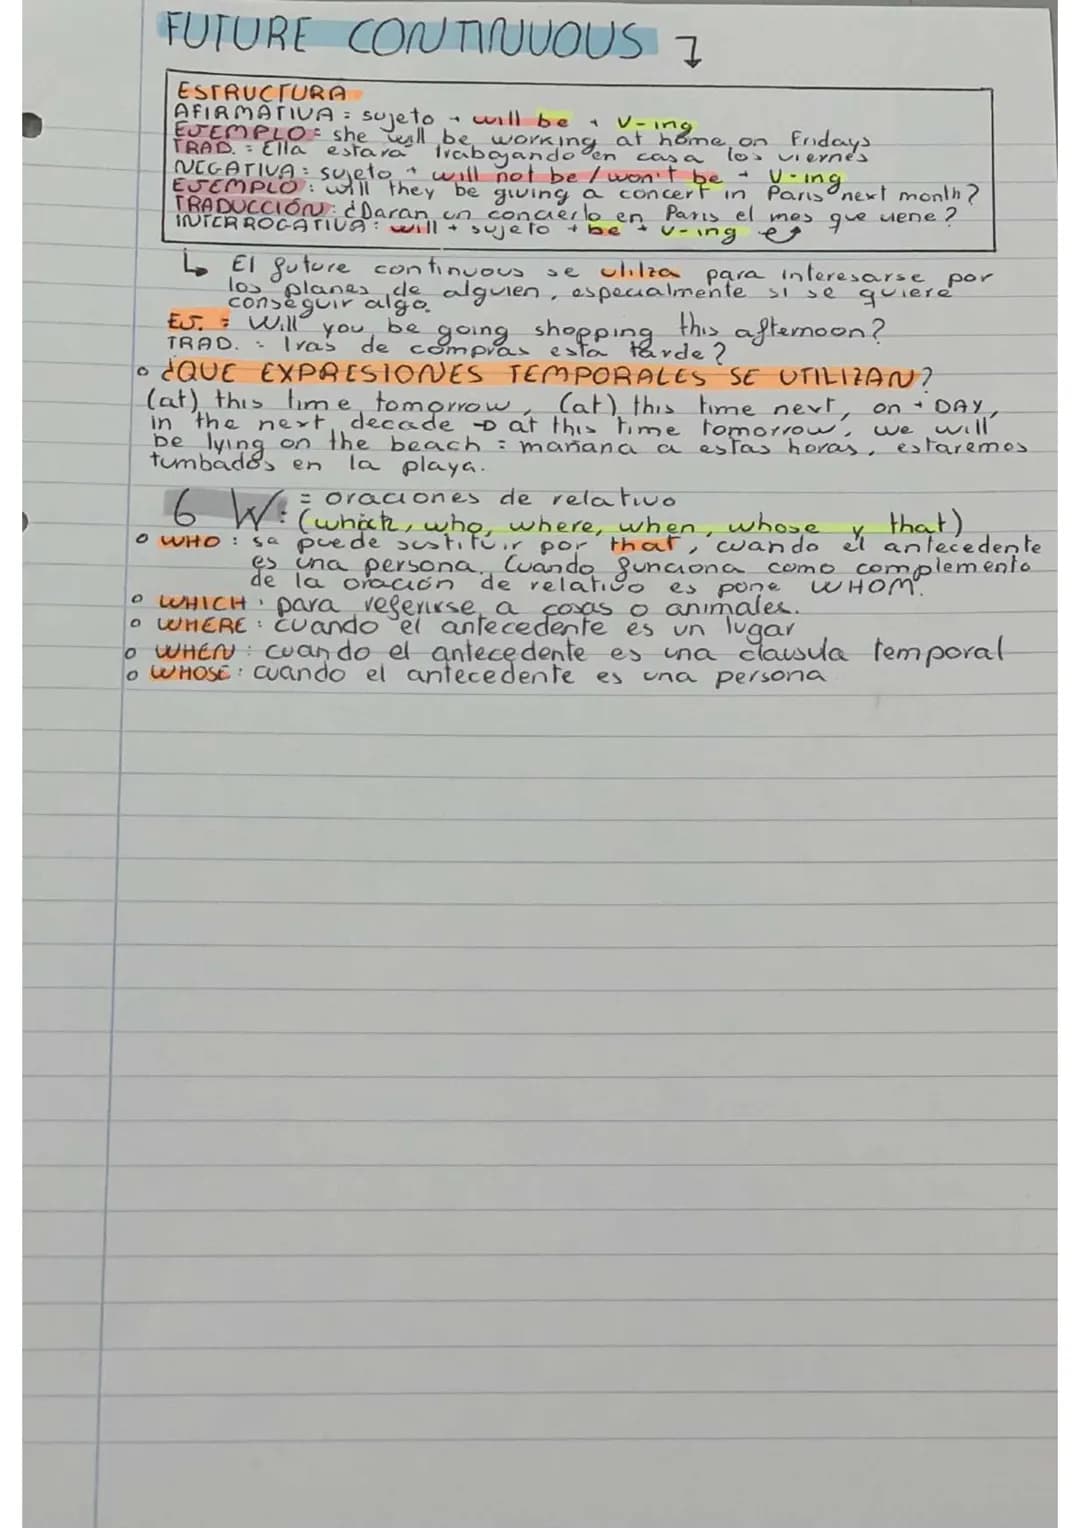 FUTURE CONTINUOUS ↴
ESTRUCTURA
AFIRMATIVA: sujeto + will be + V-ing
EJEMPLO: she will be working at home on Fridays
TRAD.: Ella estara trabajando en casa los viernes
NEGATIVA: sujeto + will not be / won't be + V-ing
EJEMPLO: will they be giving a concert in Paris next month?
TRADUCCIÓN: ¿Daran un concierto en Paris el mes que viene?
INTERROGATIVA: will + sujeto + be + V-ing
↳ El future continuous se utilza para interesarse por
los planes de alguien, especialmente si se quiere
conseguir algo.
EJ.: Will you be going shopping this afternoon?
TRAD.: Iras de compras esta tarde?
o ¿QUE EXPRESIONES TEMPORALES SE UTILIZAN?
(at) this time tomorrow, (at) this time next, on + DAY,
in the next decade → at this time tomorrow, we will
be lying on the beach = mañana a estas horas, estaremos
tumbados en la playa.
6 W: = oraciones de relativo
(which, who, where, when, whose y that)
o WHO: sa puede sustituir por that, cuando el antecedente
es una persona. Cuando funciona como complemento
de la oración de relativo es pone WHOM.
o WHICH: para referirse a cosas o animales.
o WHERE: cuando el antecedente es un lugar
o WHEN: cuando el antecedente es una clausula temporal
o WHOSE: cuando el antecedente es una persona